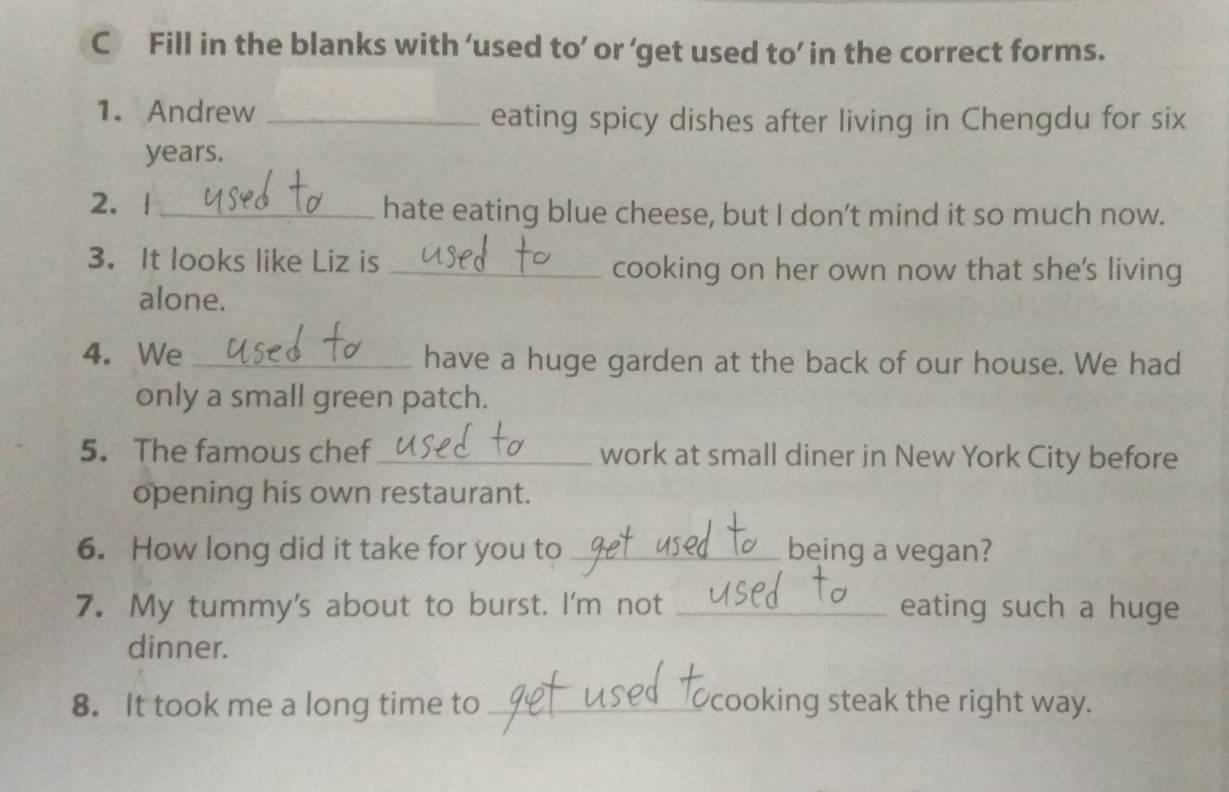 C Fill in the blanks with ‘used to’ or ‘get used to’ in the correct forms.
1. Andrew ____________ eating spicy dishes after living in Chengdu for six
years.
2. I used to hate eating blue cheese, but I don’t mind it so much now.
3. It looks like Liz is used to cooking on her own now that she’s living
alone.
4. We used to have a huge garden at the back of our house. We had
only a small green patch.
5. The famous chef used to work at small diner in New York City before
opening his own restaurant.
6. How long did it take for you to get used to being a vegan?
7. My tummy’s about to burst. I’m not used to eating such a huge
dinner.
8. It took me a long time to get used to cooking steak the right way.